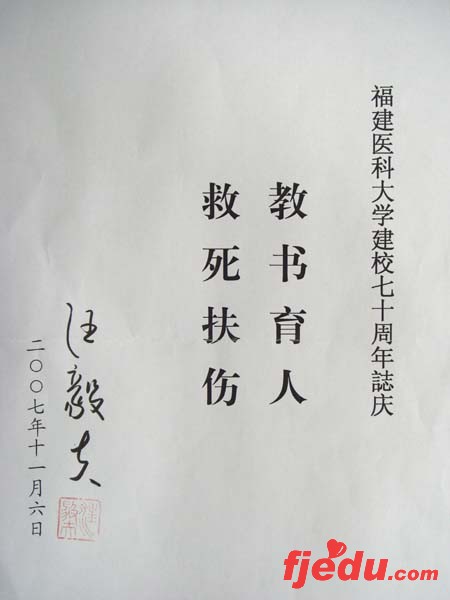 福建医科大学建校七十周年誌庆
教书育人
救死扶伤
汪毅夫
二〇〇七年十一月六日
汪毅夫
fjedu.com